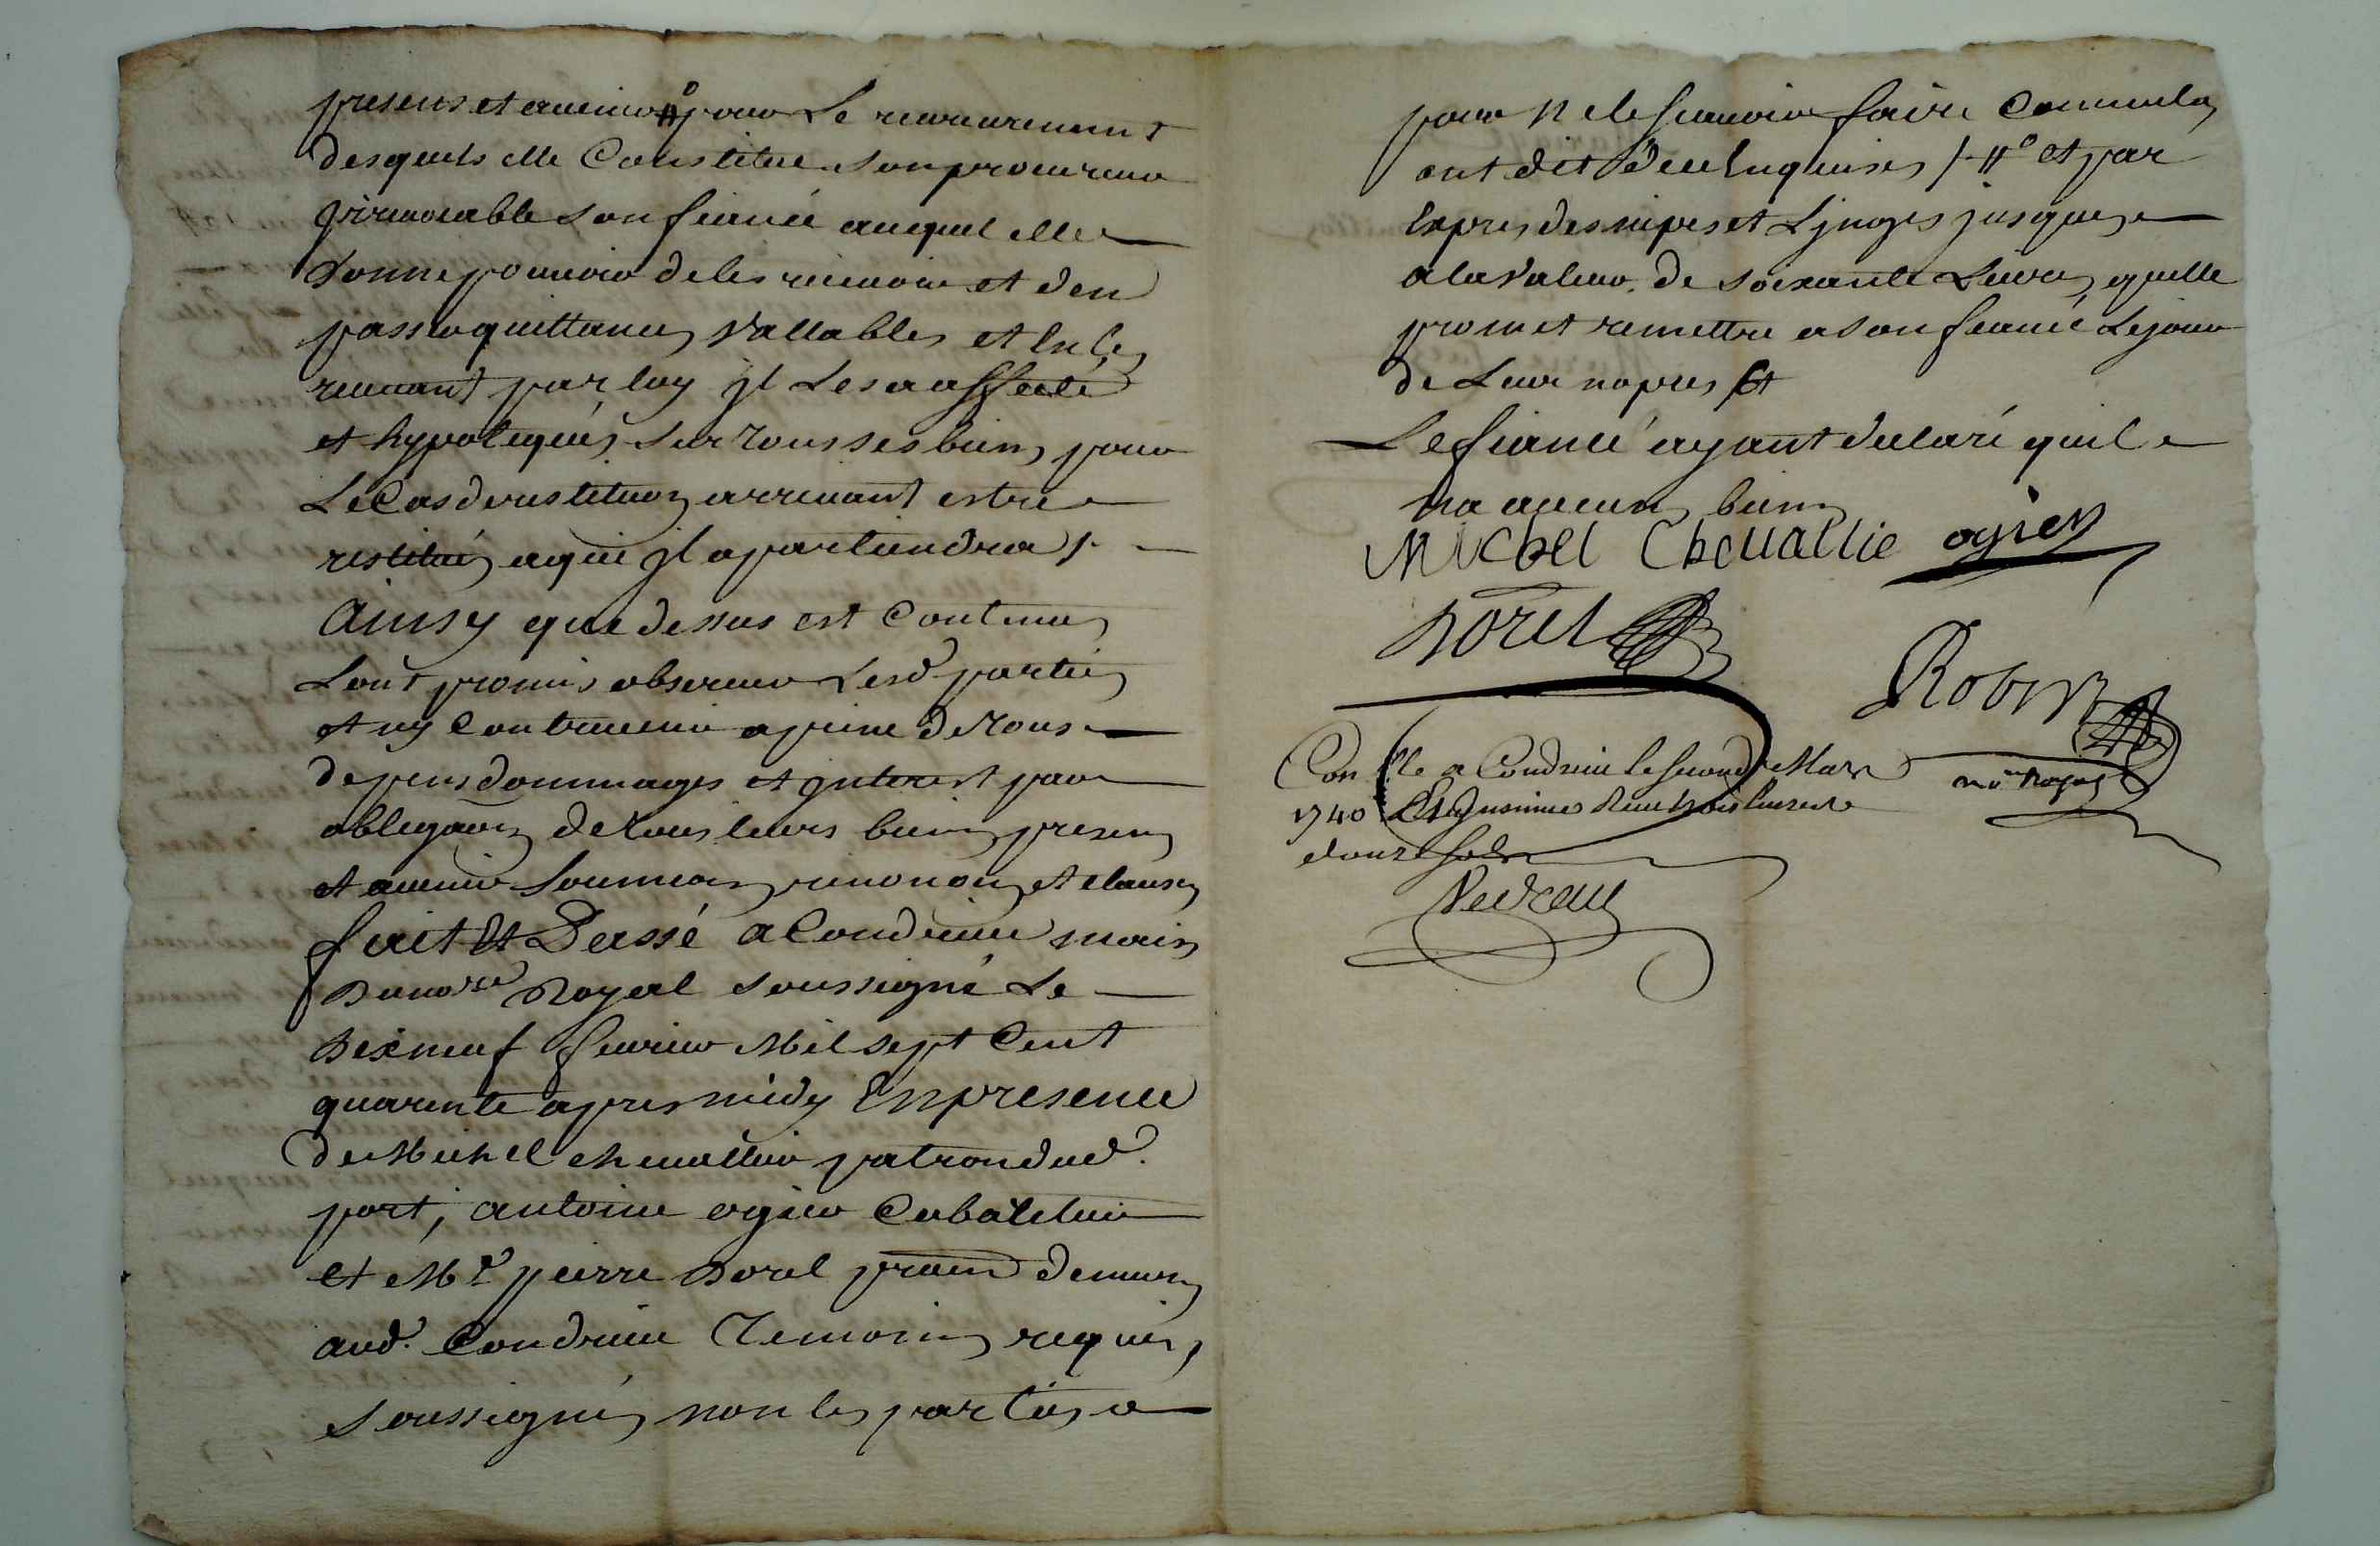 presens et avenir #° pour Le recouvrement
desquels elle Constitue son procureur
jrrevocable son fiancé auquel elle
donne pouvoir de les recevoir et den
passer quittances vallables et en les
recevant par luy jl Les a affecté
et hypotequés sur tous ses biens pour
Le Cas de restituon arrivant estre
restitués a qui jl apartiendra /.
Ainsy que dessus est Contenu
Lont promis observer Lesd. parties
et ny Contrevenir a peine de tous
depens dommages et jnterest par
obligaon de tous leurs biens presens
et avenir soumion renonon et clauses
fait Et Passé a Condrieu mains
du nore Royal soussigné Le
dixneuf fevrier Mil sept Cent
quarente apres midy En presence
de Michel chevallier patron dud.
port, antoine ogier Cabatier
et Mr. pierre dorel pratn demeurs
aud. Condrieu Temoins requis,
soussignés non les parties
pour ne le sçavoir faire Comme las
ont dit de ce Enquises /. #° et par
Exprès des nipes et Ljnges jusques
a la valeur de soixante Livres quelle
promet remettre a son fiancé Le jour
de Leur nopces Et
Le fiancé ayant declaré quil
na aucun biens
Michel Chevallie ogier
Dorel
Robin
nore Royal
Con lle a Condrieu le second Mars
1740 Et Jnsinué Receu trois livres
douze sols